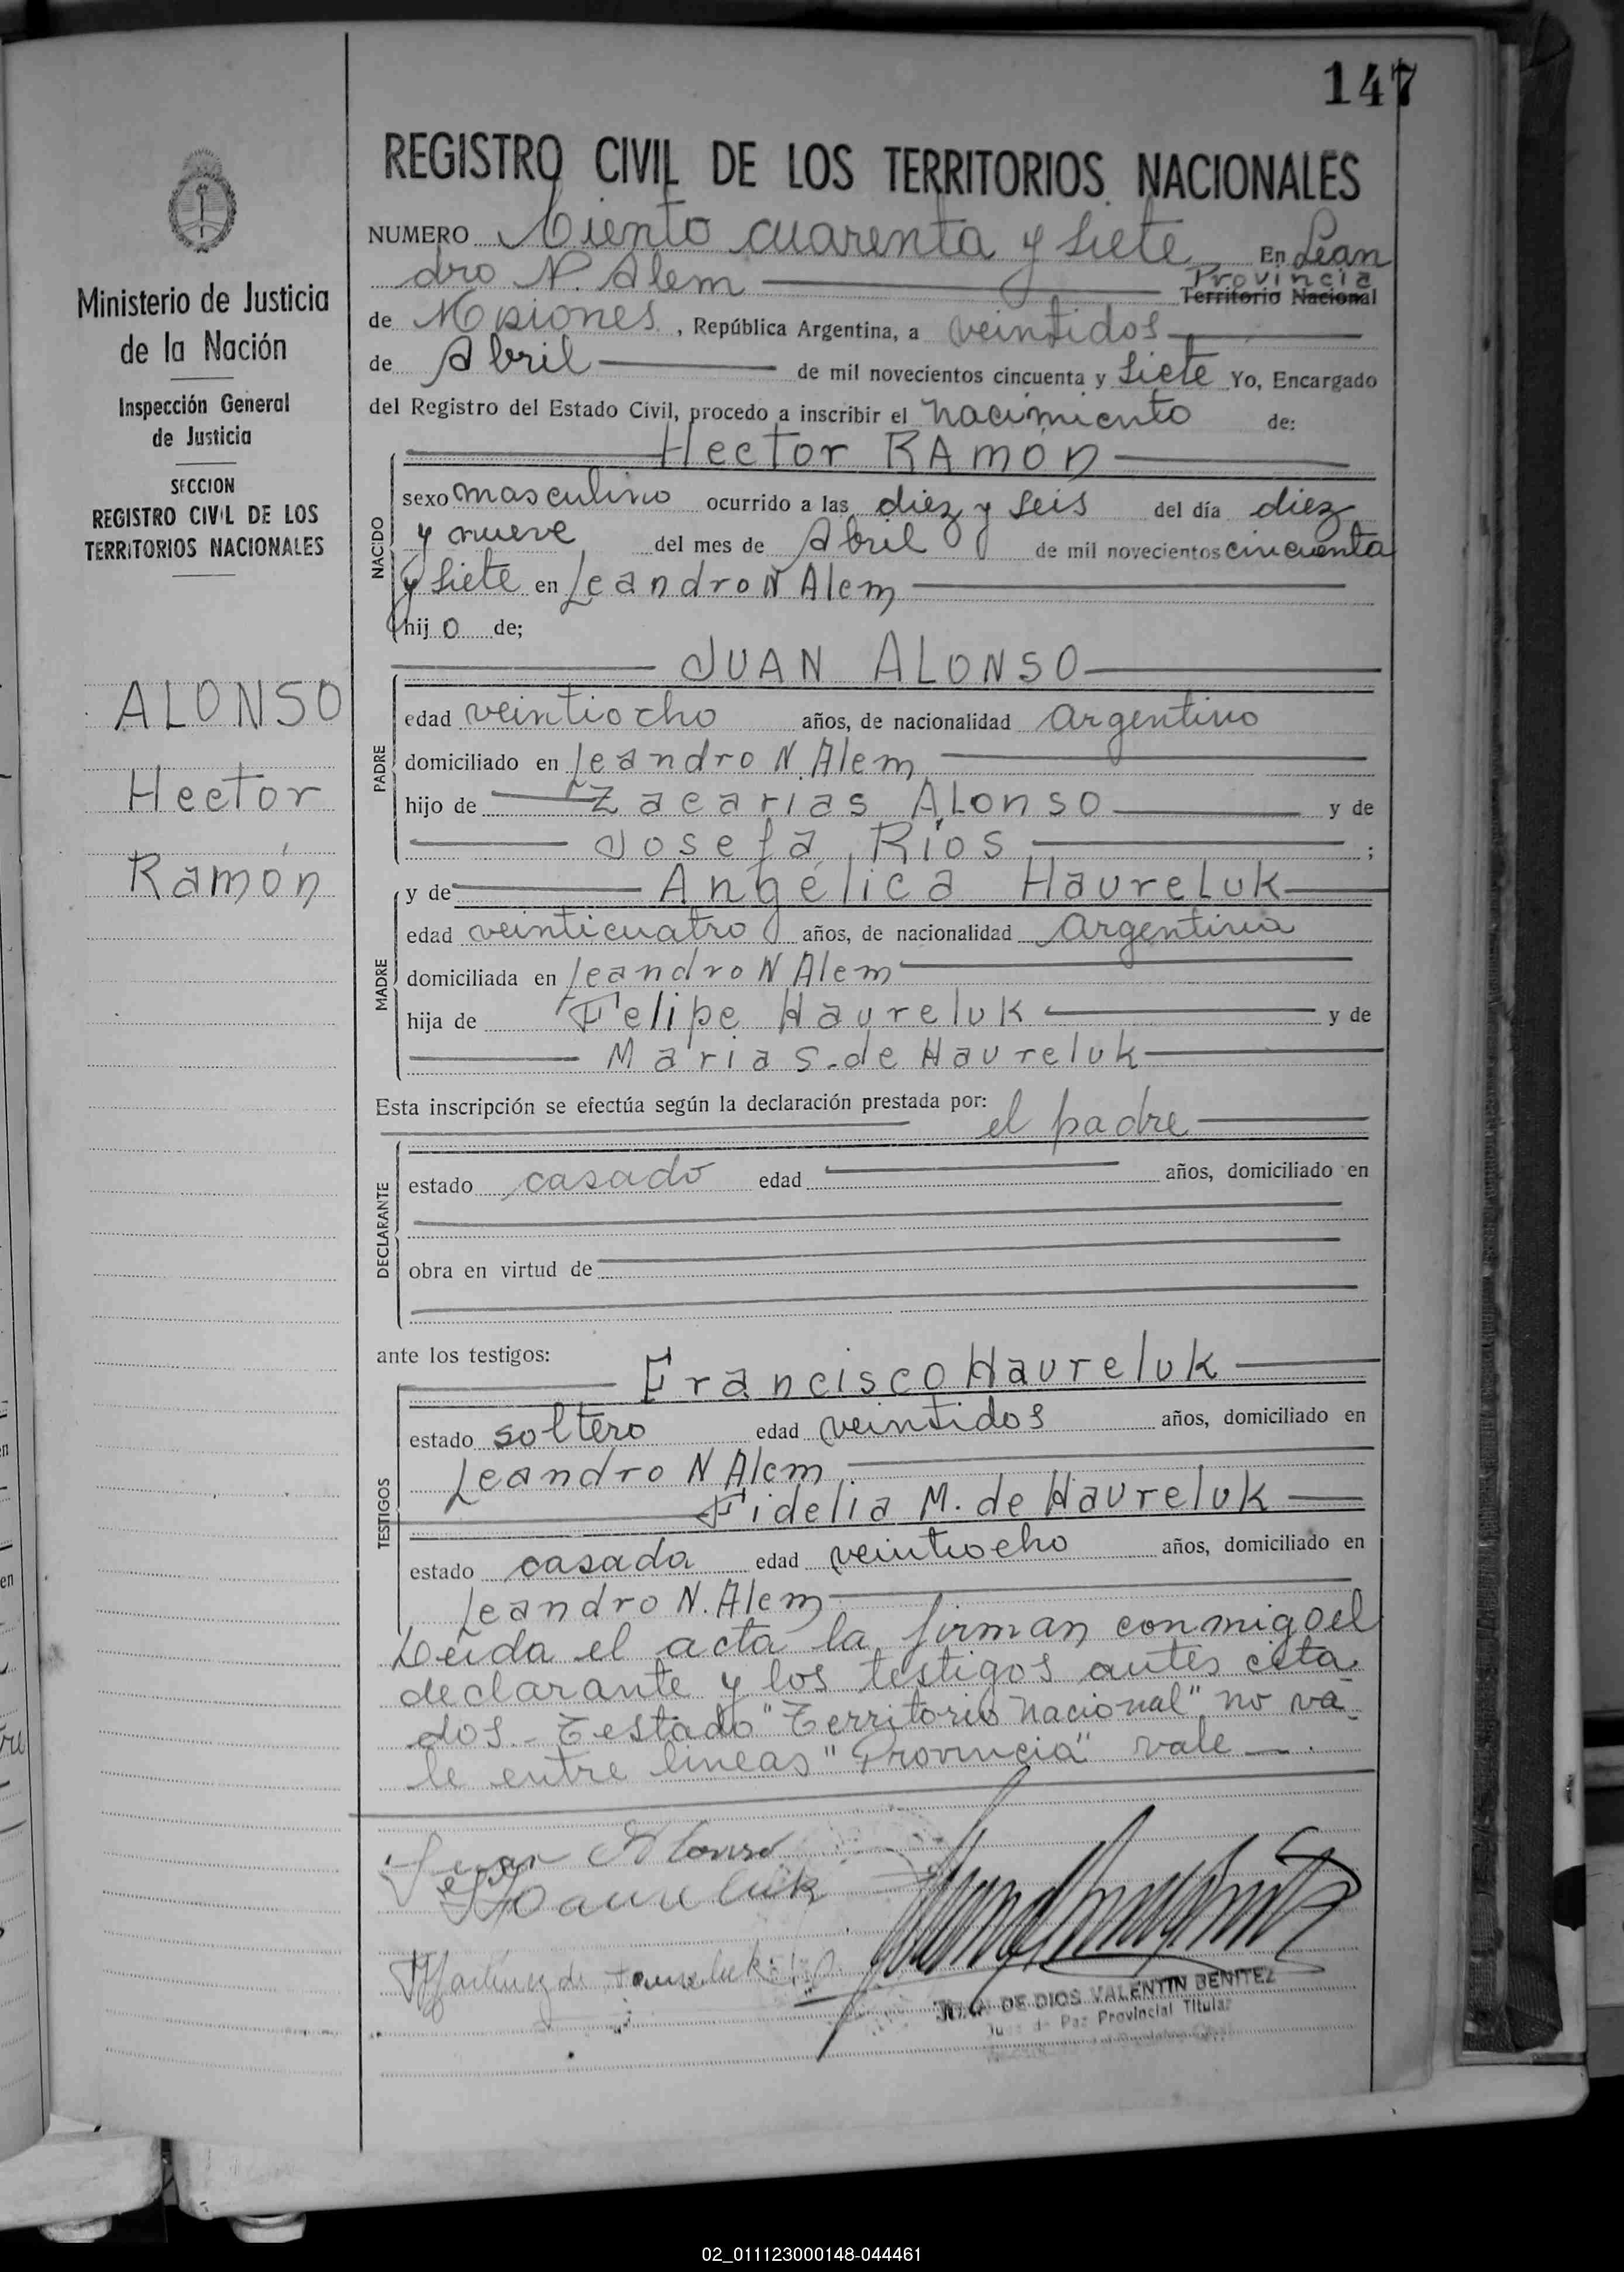 147
REGISTRO CIVIL DE LOS TERRITORIOS NACIONALES
NUMERO Ciento cuarenta y siete En Lean
dro N. Alem Provincia
Territorio Nacional
de Misiones, República Argentina, a veintidos
de Abril de mil novecientos cincuenta y siete Yo, Encargado
del Registro del Estado Civil, procedo a inscribir el nacimiento de:
Hector RAmón
NACIDO
sexo masculino ocurrido a las diez y seis del día diez
y nueve del mes de Abril de mil novecientos cincuenta
y siete en Leandro N Alem
hij o de;
JUAN ALONSO
PADRE
edad veintiocho años, de nacionalidad Argentino
domiciliado en Leandro N. Alem
hijo de Zacarias ALonso y de
Josefa Ríos ;
y de Angélica HavreLuk
MADRE
edad veinticuatro años, de nacionalidad Argentina
domiciliada en Leandro N Alem
hija de Felipe Havreluk y de
Maria S. de Havreluk
Esta inscripción se efectúa según la declaración prestada por:
el padre
DECLARANTE
estado casado edad años, domiciliado en
obra en virtud de
ante los testigos:
Francisco Havreluk
TESTIGOS
estado soltero edad veintidos años, domiciliado en
Leandro N Alem
Fidelia M. de Havreluk
estado casada edad veintiocho años, domiciliado en
Leandro N. Alem
Leida el acta la firman conmigo el
declarante y los testigos antes cita
dos.- Testado "Territorio Nacional" no va-
le entre lineas "Provincia" vale
Juan Alonso
Haureluk
JUAN DE DIOS VALENTIN BENITEZ
Juez de Paz Provincial Titular
Ministerio de Justicia
de la Nación
Inspección General
de Justicia
SECCION
REGISTRO CIVIL DE LOS
TERRITORIOS NACIONALES
ALONSO
Hector
Ramón
02_011123000148-044461